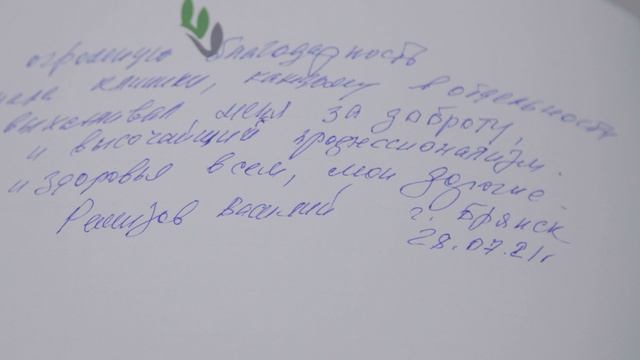 огромную благодарность
нала клиники, каждому в отдельности
выхаживал меня за доброту,
и высочайший профессионализм.
и здоровья всем, мои дорогие.
Ремизов Василий г. Брянск
28.07.21г